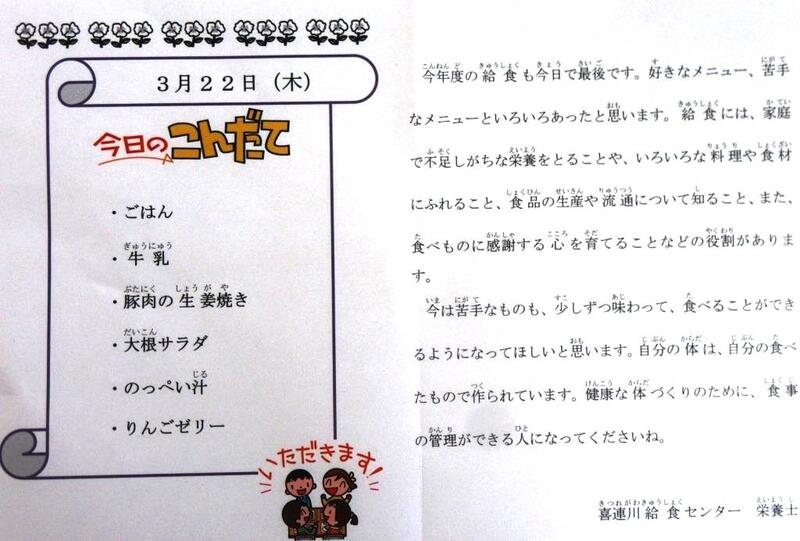 3月22日（木）
今日のこんだて
・ごはん
・牛乳
・豚肉の生姜焼き
・大根サラダ
・のっぺい汁
・りんごゼリー
いただきます!
今年度の給食も今日で最後です。好きなメニュー、苦手
なメニューといろいろあったと思います。給食には、家庭
で不足しがちな栄養をとることや、いろいろな料理や食材
にふれること、食品の生産や流通について知ること、また、
食べものに感謝する心を育てることなどの役割がありま
す。
今は苦手なものも、少しずつ味わって、食べることができ
るようになってほしいと思います。自分の体は、自分の食べ
たもので作られています。健康な体づくりのために、食事
の管理ができる人になってくださいね。
喜連川給食センター　栄養士